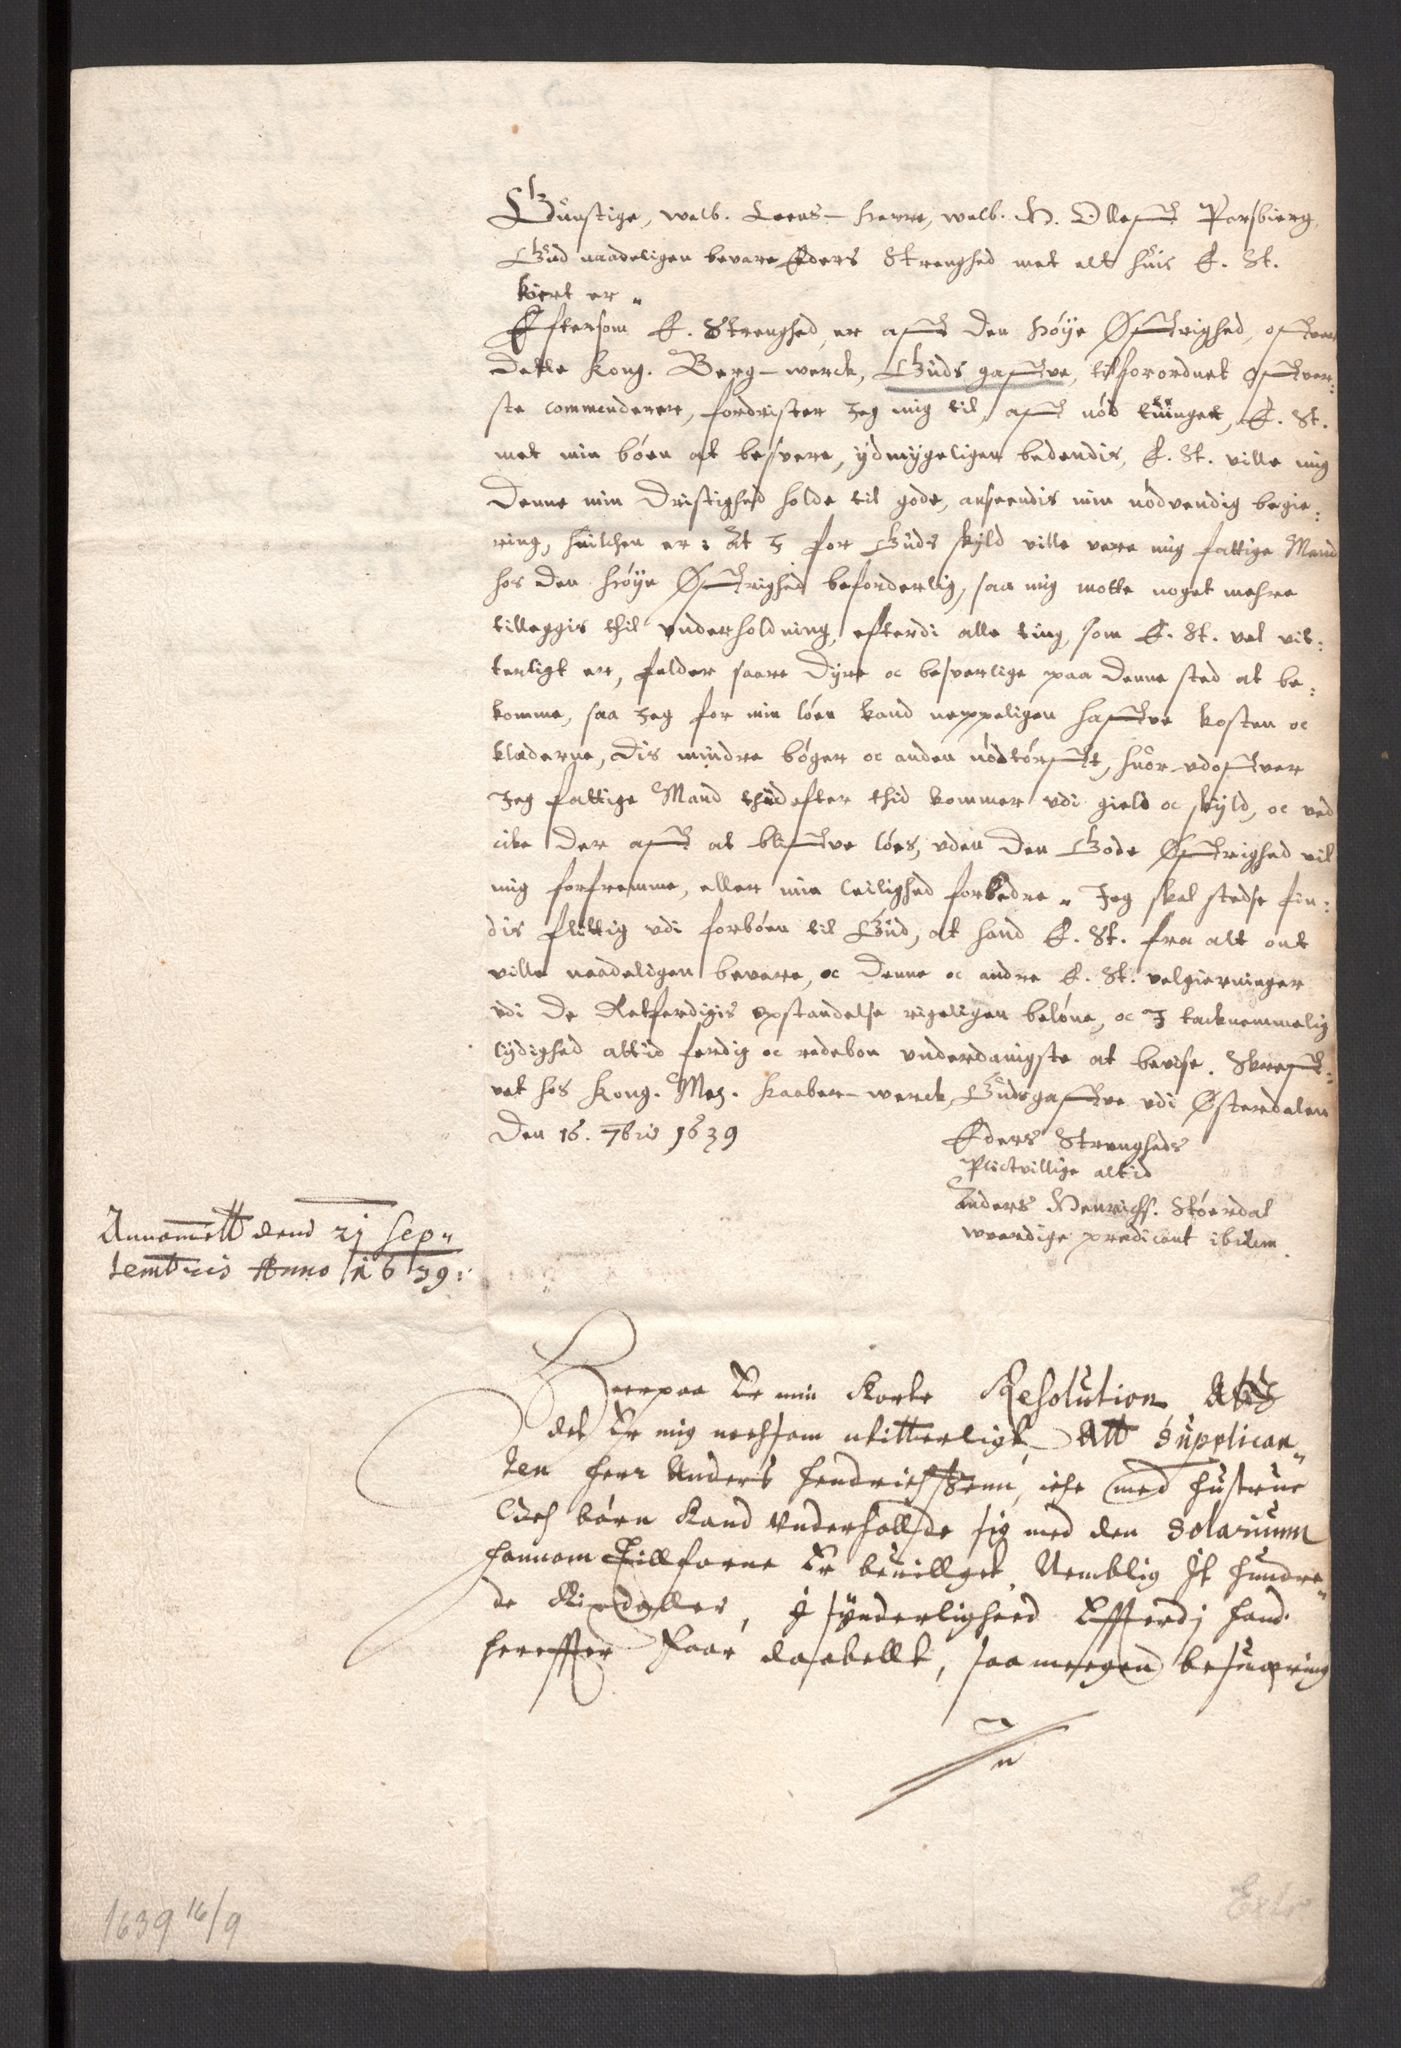 Gunstige, welb. Leens-herre, welb. H. Oluff Parsbierg,
Gud naadeligen bevare Eders Strenghed met alt huis E. St.
kiert er.
Eftersom E. Strenghed er aff den Høye Øffrighed, offver
dette Kong. Berg-werck, Guds gaffve, tilforordnet Offver-
ste commenderer, fordrister Jeg mig til, aff nød tuinget, E. St.
met min bøen at besvere, ydmygeligen bedendis, E. St. ville mig
denne min dristighed holde til gode, anseendis min nødvendig begie-
ring, huilchen er: At I for Guds skyld ville vere mig fattige Mand
hos den Høye Øffrighed beforderlig, saa mig motte noget mehre
tilleggis thil underholdning, efterdi alle ting, som E. St. vel vit-
terligt er, falder saare dyre oc besverlige paa denne sted at be-
komme, saa Jeg for min løen kand neppeligen haffve kosten oc
klæderne, dis mindre bøger oc anden nødtørfft, huor udoffver
Jeg fattige Mand thid efter thid kommer udi gield oc skyld, oc ved
icke der aff at bliffve løes, uden den Gode Øffrighed vil
mig forfremme, eller min leilighed forbedre. Jeg skal stedse fin-
dis flittig udi forbøen til Gud, at hand E. St. fra alt ont
ville naadeligen bevare, oc denne oc andre E. St. velgierninger
udi de Retferdigis opstandelse rigeligen beløne, oc I tacknemmelig
lydighed altid ferdig oc redebon underdanigste at bevise. Skreff-
vet hos Kong. Mez. Kaaber-werck, Gudsgaffve udi Østerdalen
Den 16. 7bris 1639
Eders Strengheds
Plictvillige altid
Anders Henrichs. Støerdal
werdige predicant ibidem.
Annamett dend 21 Sep-
tembris Anno 1639:
Heerpaa Er min Korte Resolution
det Er mig nochsom vitterligt, Att Supplican-
ten Herr Anders Hendrichssenn, iche med hustrue
Och børn Kand Underhollde sig med den Solarium
hannom Tillforne Er beuillget, Nemblig It hundre-
de Rixdaller, I synderligheed Effterdj hand
hereffter Faar daabellt, saa megen besuæring
1639 16/9